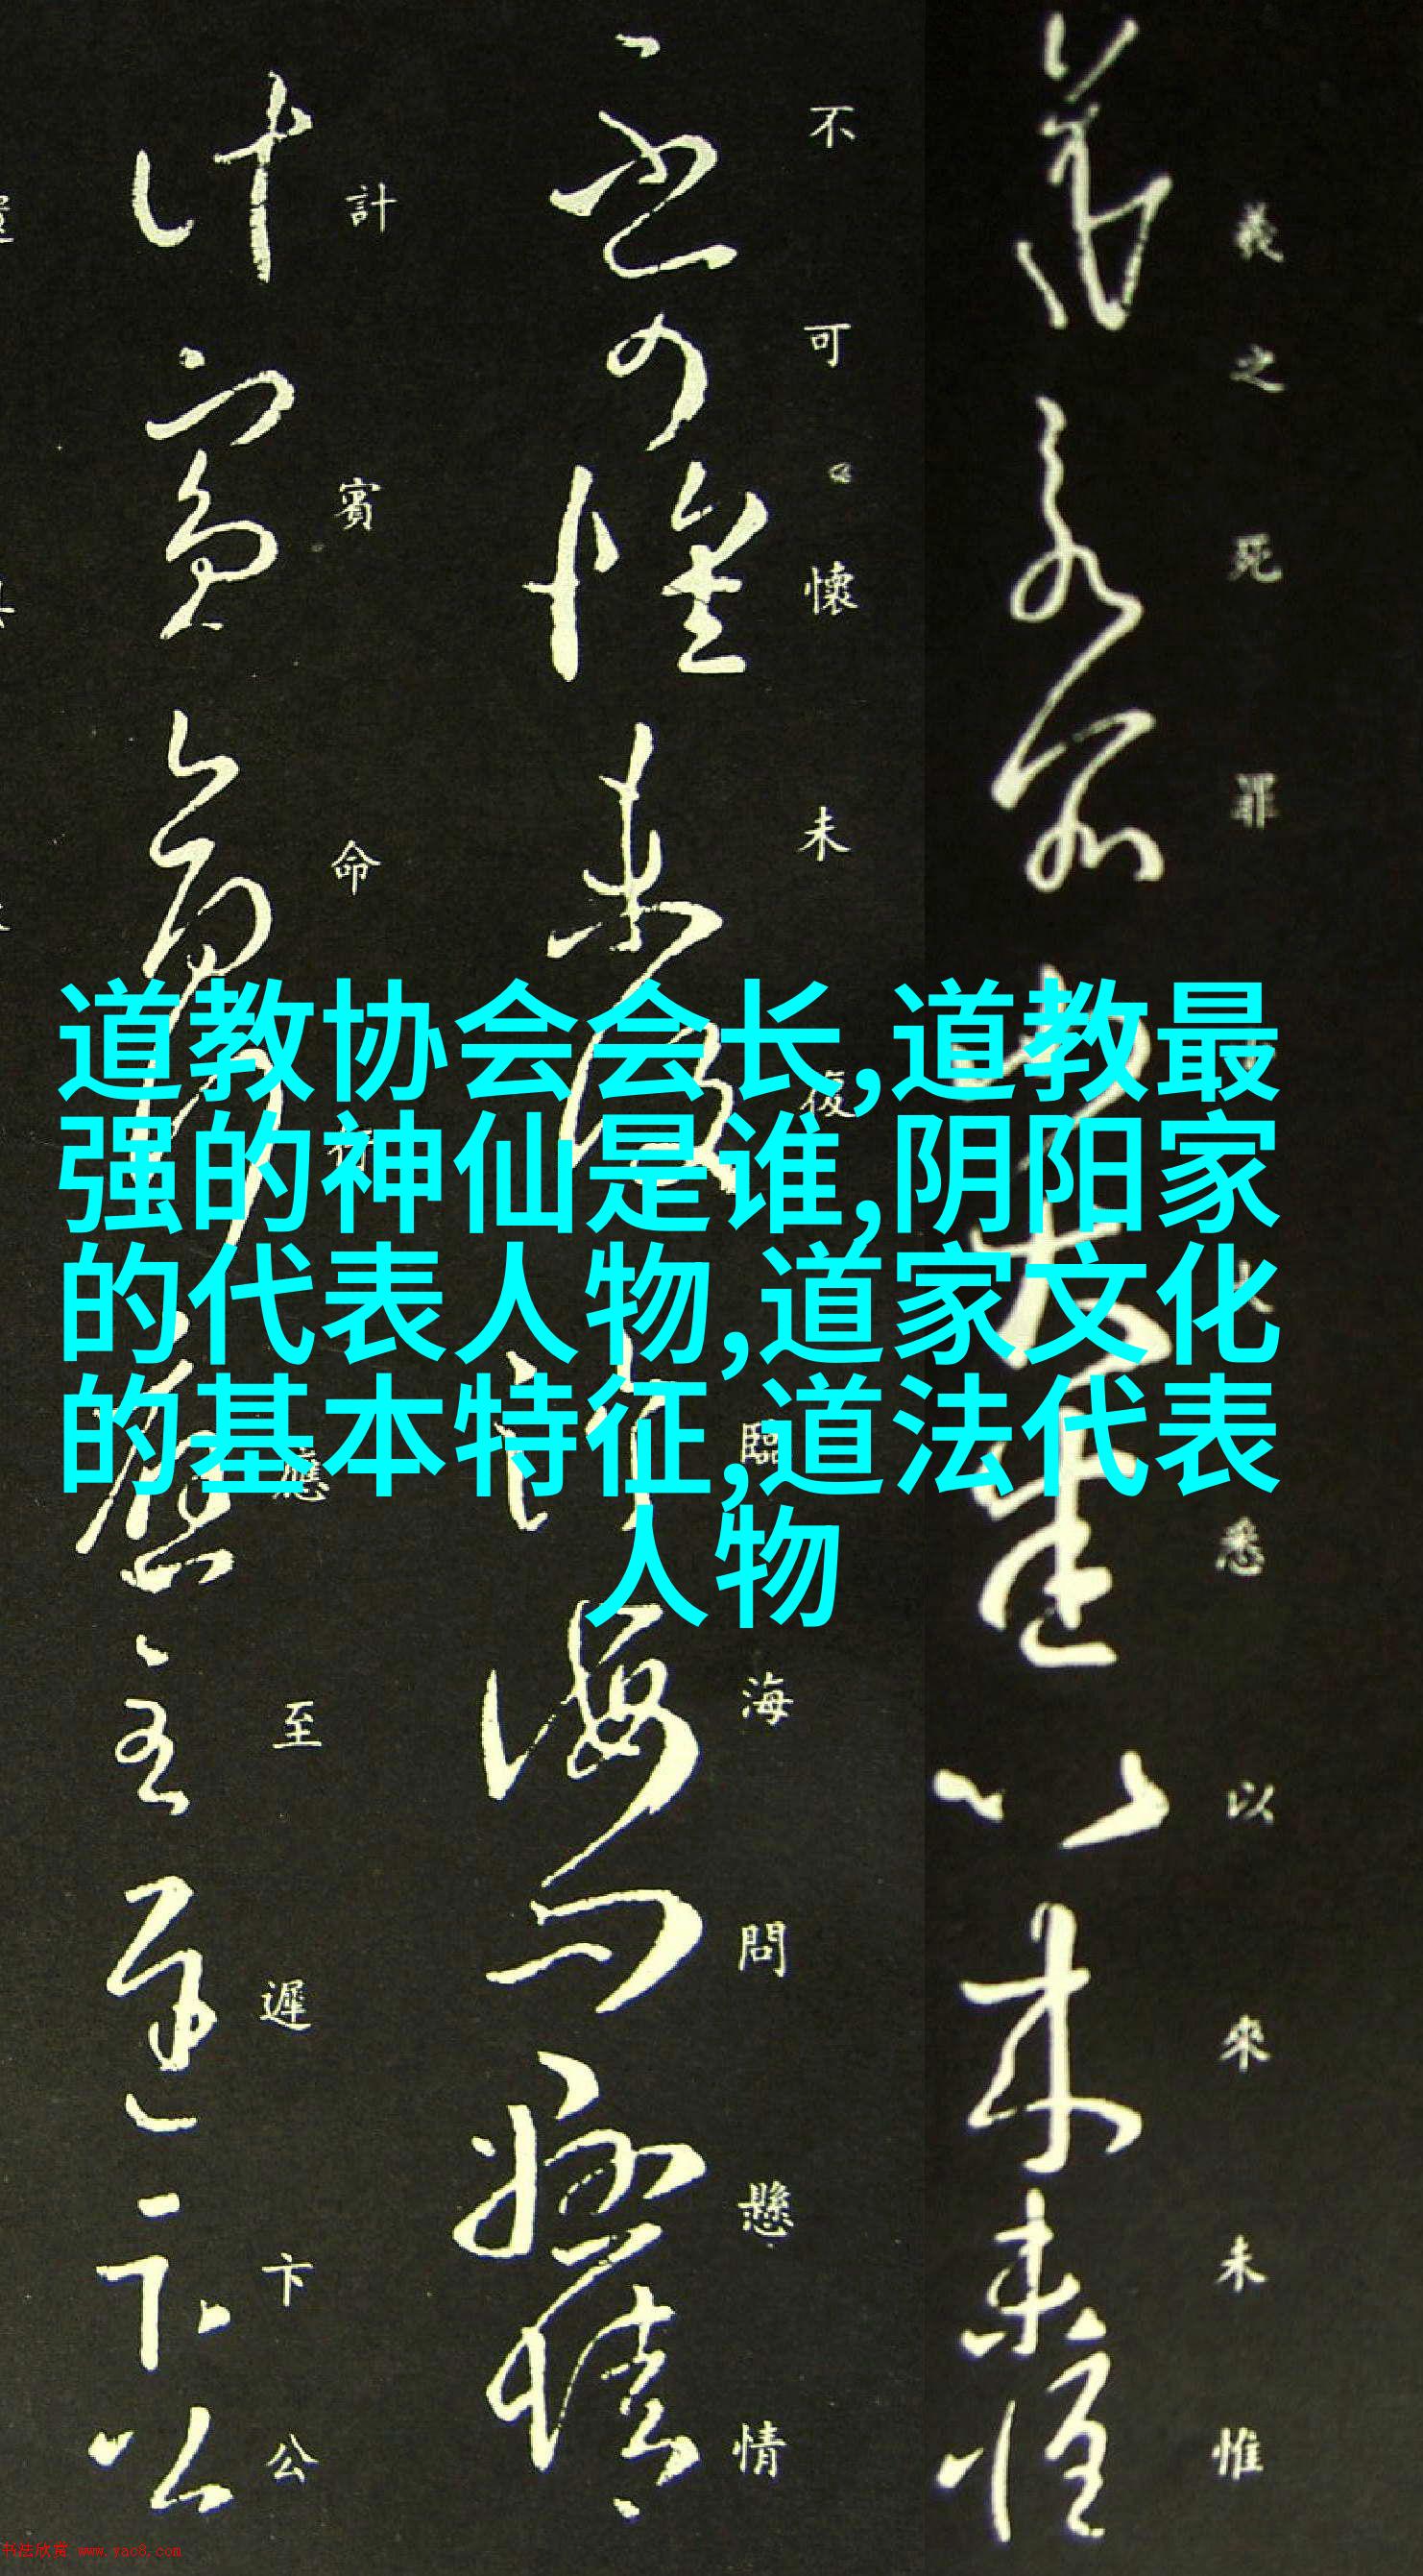 道教协会会长,道教最
强的神仙是谁,阴阳家
的代表人物,道家文化
的基本特征,道法代表
人物
羲之死罪
悉以來未惟
不可懷未復
臨海問懸情
計賓命
應至遲卞公
书法欣赏 www.yac8.com